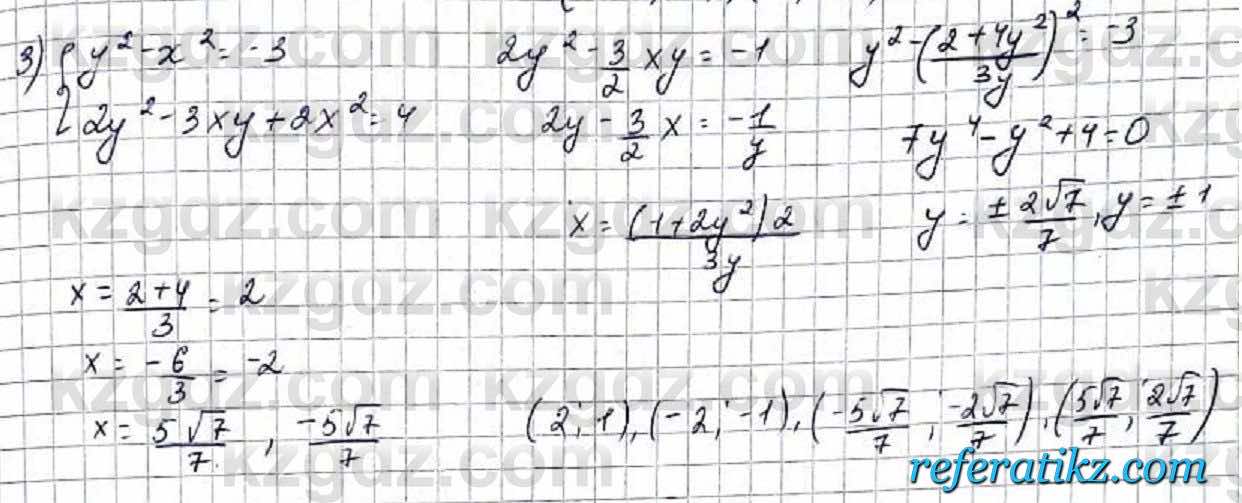 3) { y² - x² = -3
2y² - 3xy + 2x² = 4
2y² - 3/2 xy = -1
2y - 3/2 x = -1/y
x = (1+2y²)2 / 3y
y² - ((2+4y²)/3y)² = -3
7y⁴ - y² + 4 = 0
y = ± 2√7/7, y = ± 1
x = (2+4)/3 = 2
x = -6/3 = -2
x = 5√7/7, -5√7/7
(2; 1), (-2; -1), (-5√7/7; -2√7/7), (5√7/7; 2√7/7)
kzgdz.com
referatikz.com